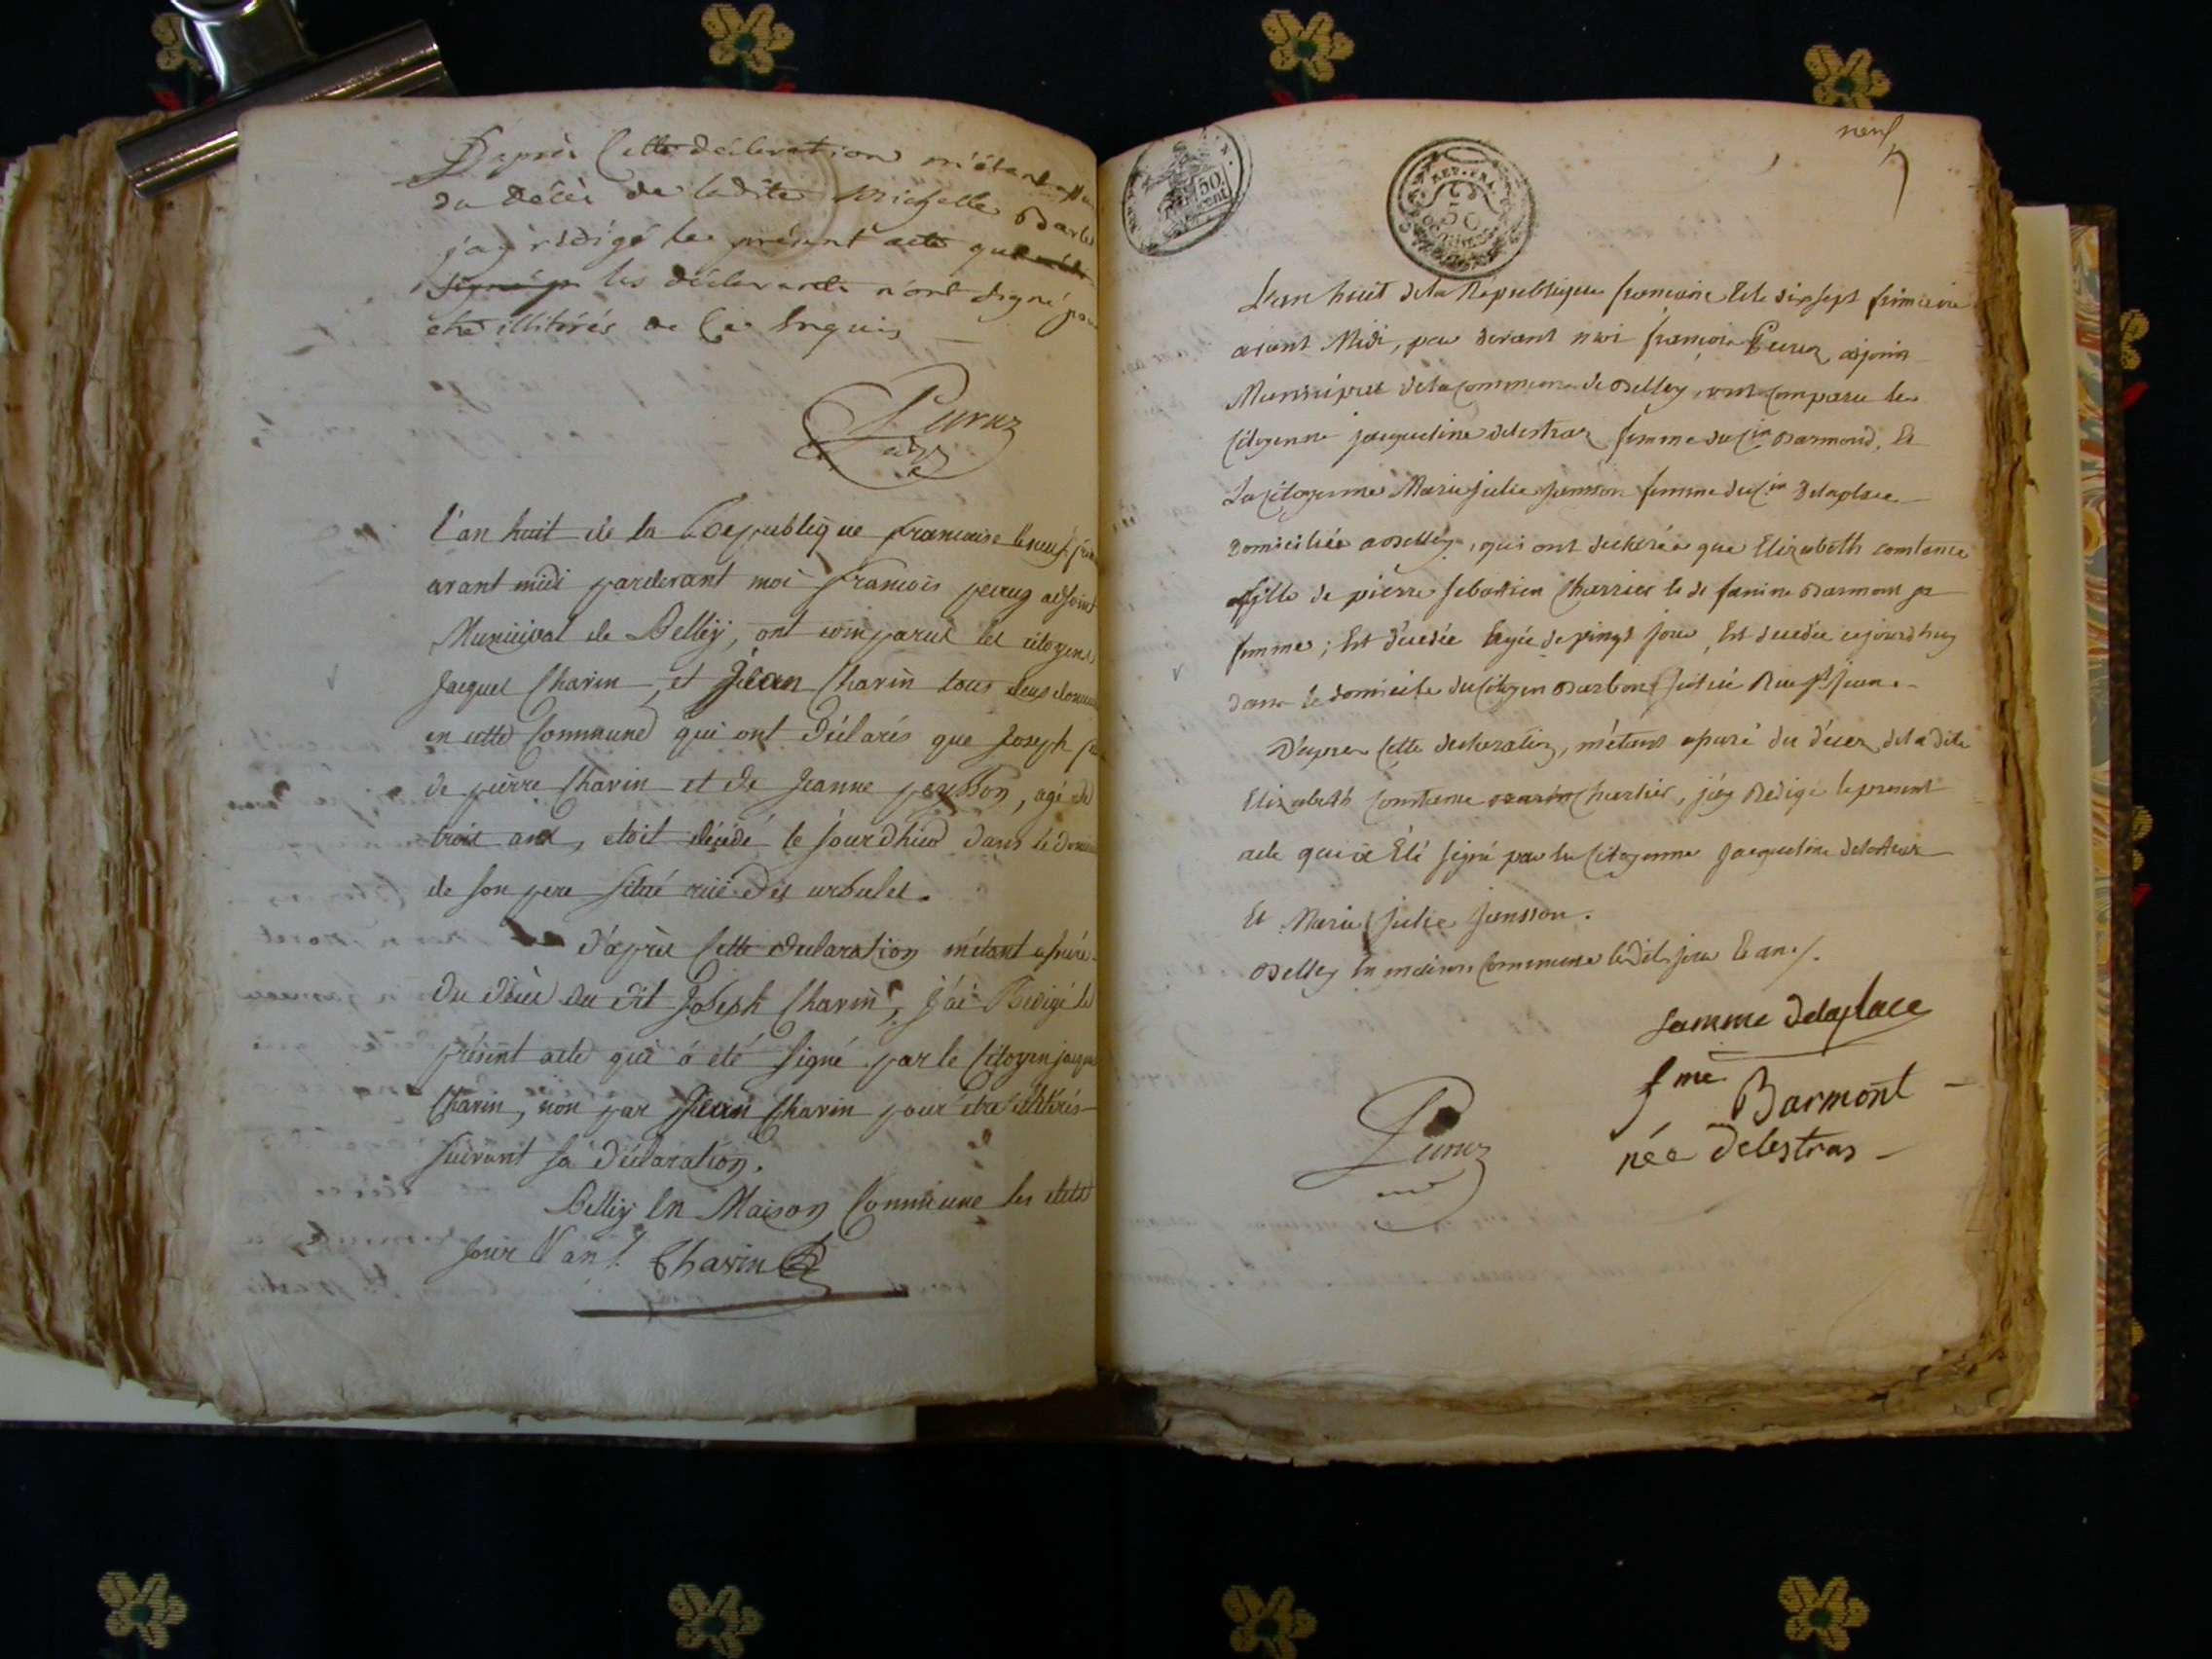 D'après Cette déclaration m'étant
du décès de ladite Michelle Barbe
j'ay rédigé le présent acte que
les déclarants n'ont signé pour
etre illitérés de Ce Enquis
Peruz
adj
l'an huit de la Republique francaise le neuf
avant midi pardevant moi francois peruz adjoint
Municipal de Belley, ont comparus les citoyens
Jacques Charin, et Jean Charin tous deux
en cette Commune qui ont déclarés que Joseph
de pierre Charin et de Jeanne peysson, agé de
trois ans, etoit décédé le jourdhui dans le
de son pere situé rue des ursules.
d'après Cette declaration m'étant assuré
du décès du dit Joseph Charin, j'ai Redigé le
présent acte qui à eté signé par le Citoyen jacques
Charin, non par Jean Charin pour etre illiterés
suivant sa déclaration.
Belley en Maison Commune les
jour & an.
Charin
neuf
9
REP. FRA.
50
50
cent
L'an huit de la République francaise & le dix sept frimaire
avant Midi, par devant moi françois Peruz adjoint
Municipal de la Commune de Belley, ont Comparu la
Citoyenne jacqueline delestras femme du Cin Barmond, Et
La Citoyenne Marie Julie femme du Cin Delaplace
Domiciliée a Belley, qui ont déclarée que Elizabeth Constance
fille de pierre Sebastien Charrier & de fanine Barmont sa
femme; Est décedée agée de vingt jours, Est decedée cejourdhuy
dans le domicile du Citoyen Barbon situé Rue St jean.
D'apres Cette declaration, m'étant assuré du déces deladite
Elizabeth Constance Charrier, j'ay Redigé le present
acte qui à Eté signé par les Citoyenne Jacqueline delestras
Et Marie Julie
Belley En maison Commune lesdits jour & an./.
famme Delaplace
fme Barmont
née Delestras
Peruz